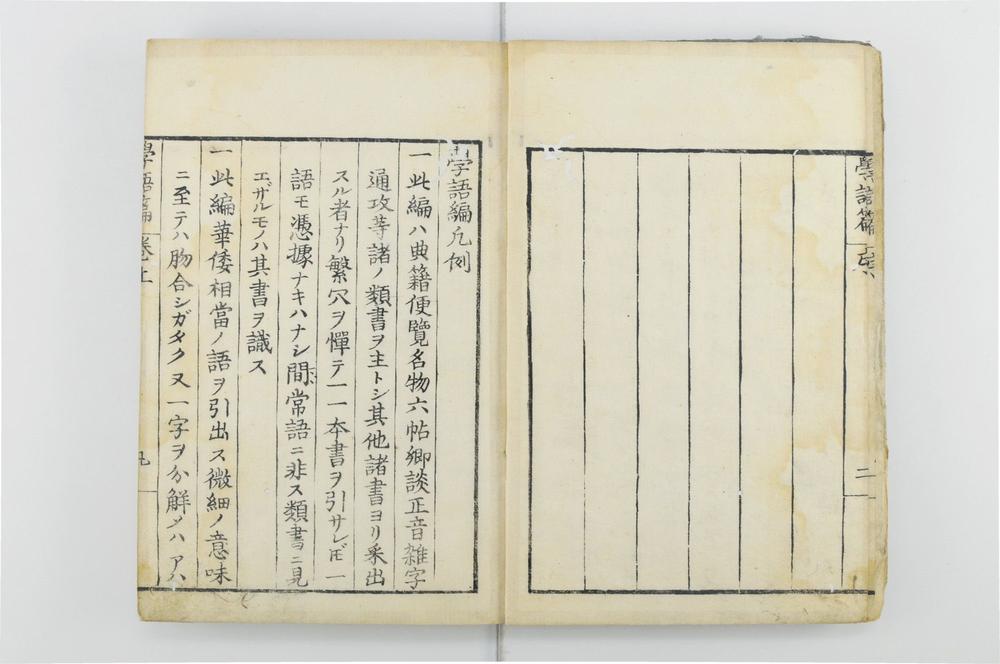 學語篇
二
學語編凡例
一此編ハ典籍便覽名物六帖鄉談正音雜字
通攷等諸ノ類書ヲ主トシ其他諸書ヨリ采出
スル者ナリ繁冗ヲ憚テ一一本書ヲ引サレ𪜈一
語モ憑據ナキハナシ間常語ニ非ス類書ニ見
エザルモノハ其書ヲ識ス
一此編華倭相當ノ語ヲ引出ス微細ノ意味
ニ至テハ脗合シガタク又一字ヲ分解メハアハ
學語篇 卷上
凡